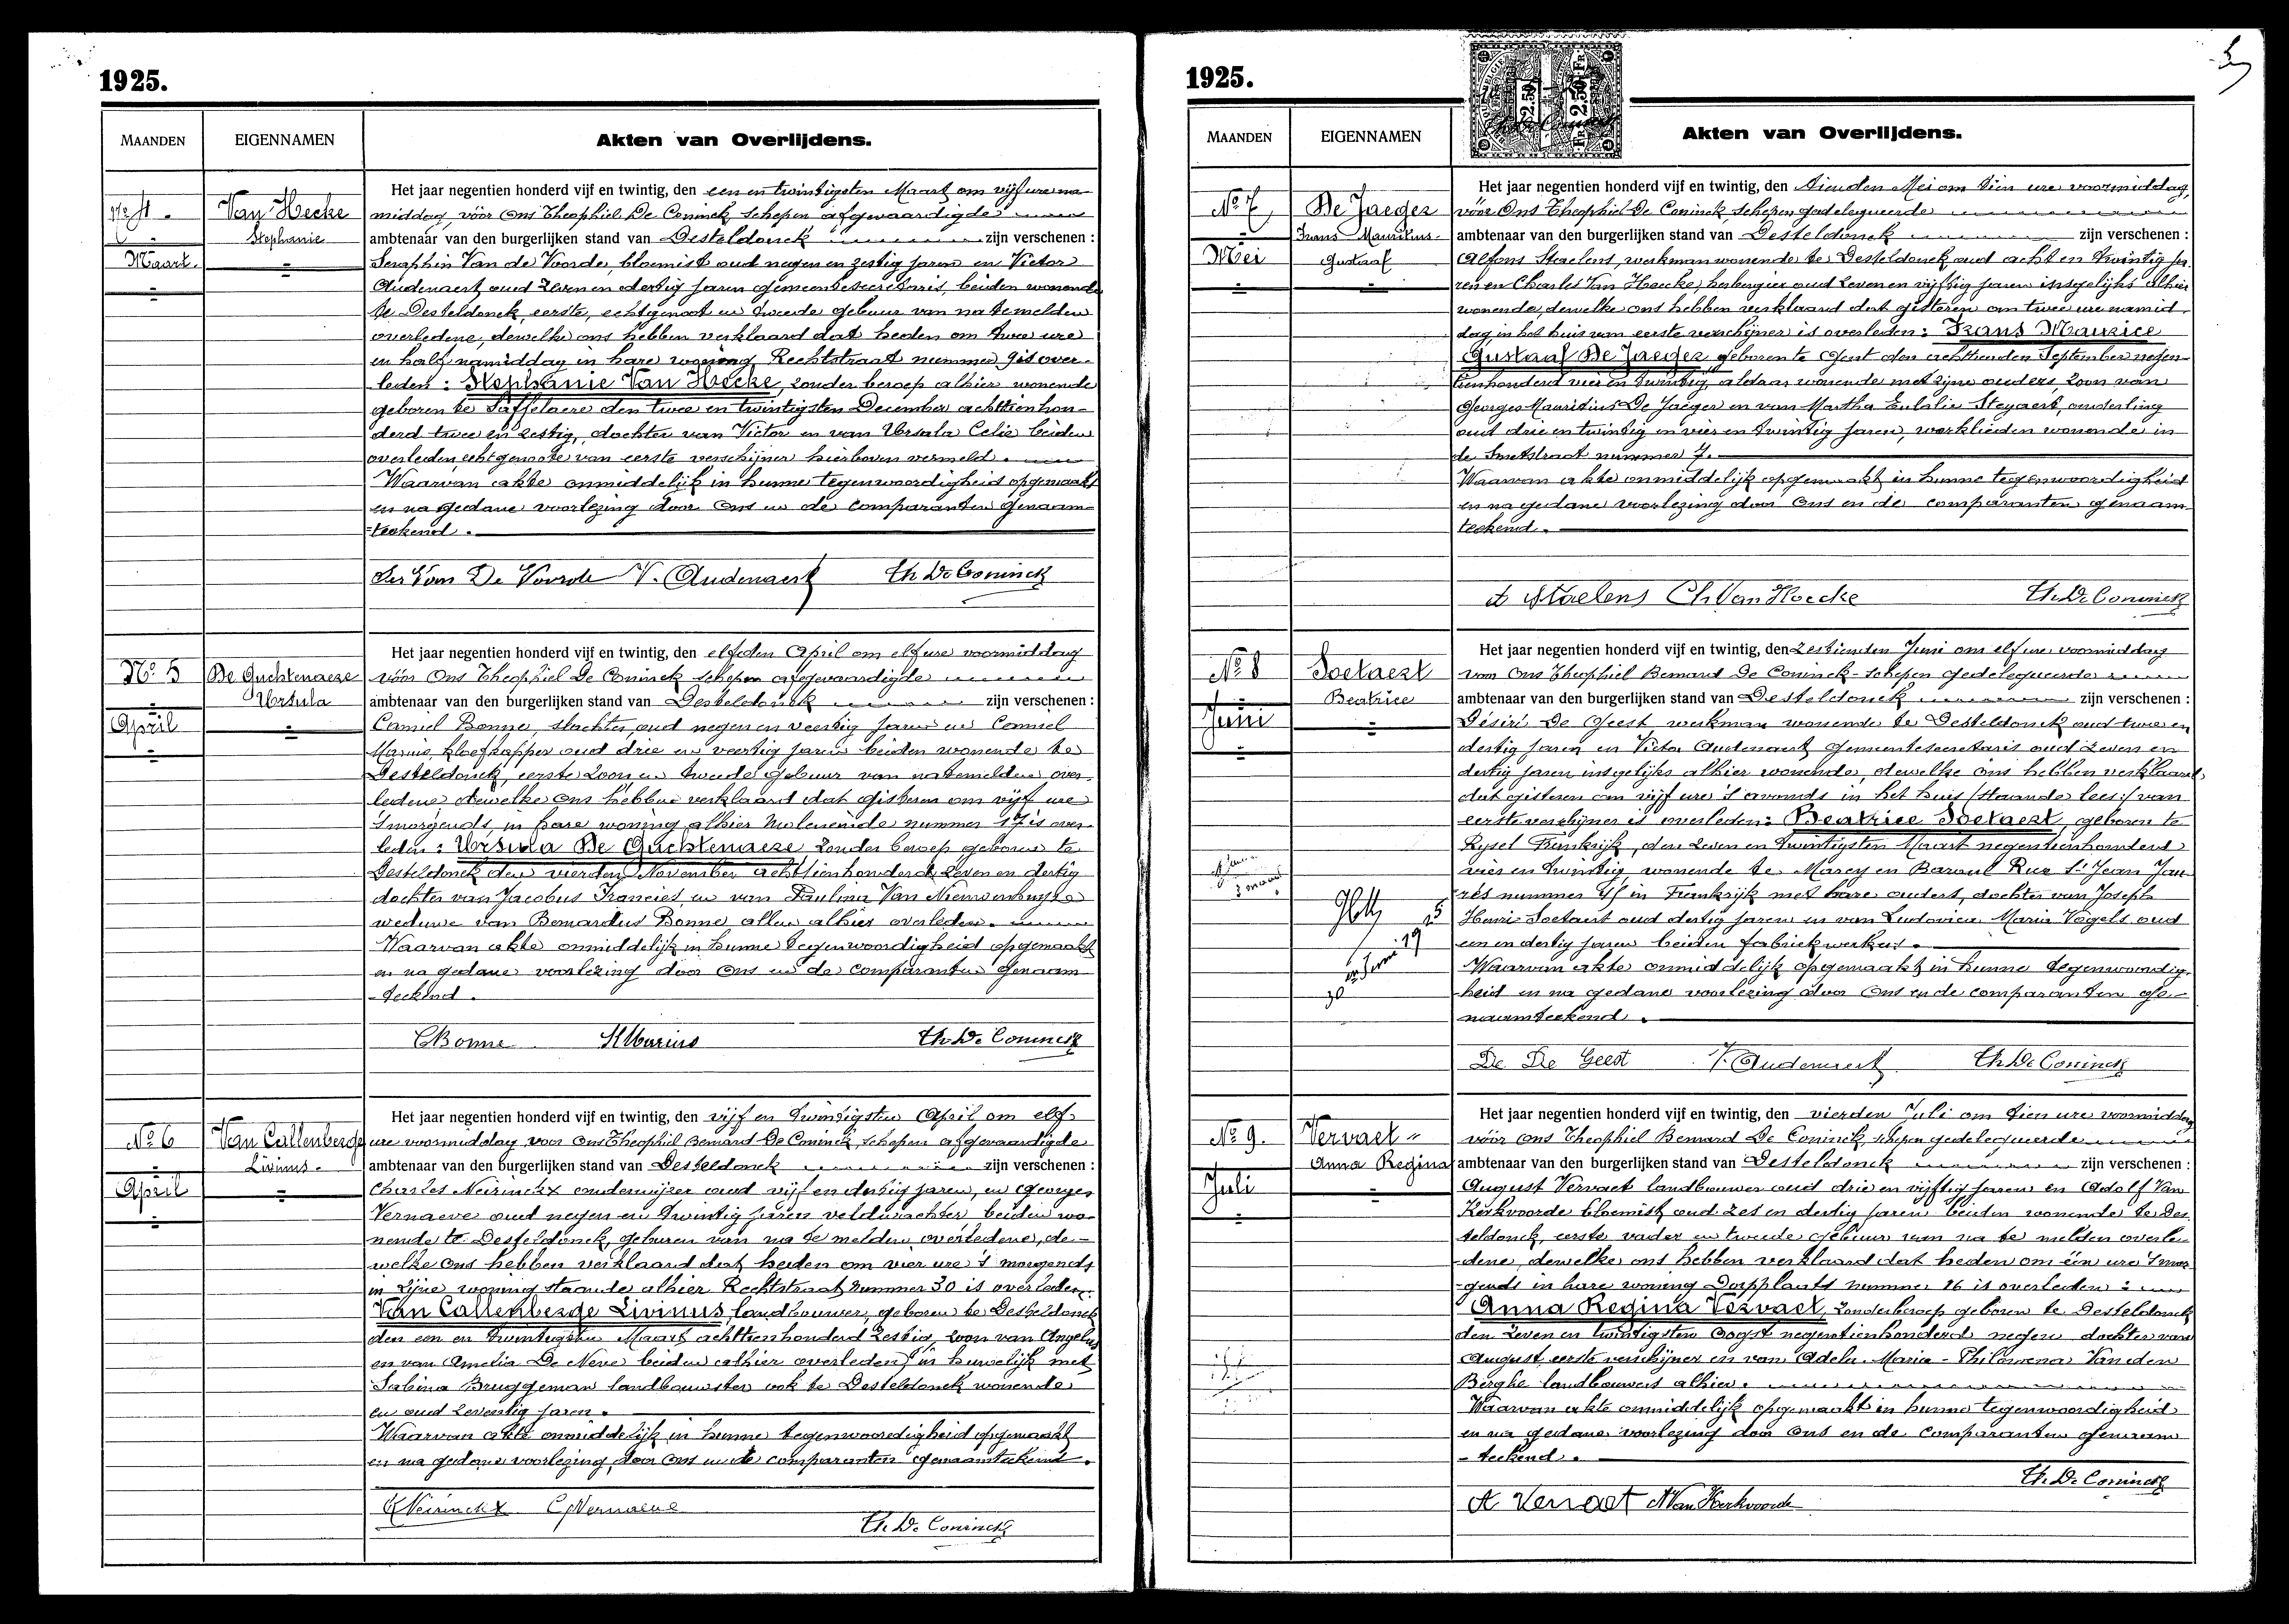 1925.
MAANDEN EIGENNAMEN Akten van Overlijdens.
Het jaar negentien honderd vijf en twintig, den een en twintigsten Maart om vijf ure na
No 4. Van Hecke middag, vóór Ons Theophiel De Coninck schepen afgevaardigde
Stephanie ambtenaar van den burgerlijken stand van Desteldonck zijn verschenen :
Maart. Seraphin Van de Voorde, bloemist oud negen en zestig jaren en Victor
Audenaert oud zeven en dertig jaren gemeentesecretaris, beiden wonende
te Desteldonck, eerste, echtgenoot en tweede gebuur van na te melden
overledene, dewelke ons hebben verklaard dat heden om twee ure
en half namiddag in hare woning Rechtstraat nummer 9 is over-
leden : Stephanie Van Hecke, zonder beroep alhier wonende
geboren te Saffelaere den twee en twintigsten December achttienhon-
derd twee en zestig, dochter van Victor en van Ursula Celie beiden
overleden, echtgenoote van eerste verschijner hierboven vermeld.
Waarvan akte onmiddelijk in hunne tegenwoordigheid opgemaakt
en na gedane voorlezing door Ons en de comparanten genaam-
teekend.
Ser Van De Voorde V. Audenaert Th De Coninck
Het jaar negentien honderd vijf en twintig, den elfden April om elf ure voormiddag
No 5 De Guchtenaere vóór Ons Theophiel De Coninck schepen afgevaardigde
Ursula ambtenaar van den burgerlijken stand van Desteldonck zijn verschenen :
April Camiel Bonne, slachter, oud negen en veertig jaren en Camiel
Marius, kloefkapper oud drie en veertig jaren beiden wonende te
Desteldonck, eerste zoon en tweede gebuur van na te melden over-
ledene dewelke ons hebben verklaard dat gisteren om vijf ure
smorgends, in hare woning alhier Moleneinde nummer 17 is over-
leden : Ursula De Guchtenaere zonder beroep geboren te
Desteldonck den vierden November achttienhonderd zeven en dertig
dochter van Jacobus Francies, en van Paulina Van Nieuwenhuyse
weduwe van Bernardus Bonne allen alhier overleden.
Waarvan akte onmiddelijk in hunne tegenwoordigheid opgemaakt
en na gedane voorlezing door Ons en de comparanten genaam-
teekend.
CBonne Marius Th. De Coninck
Het jaar negentien honderd vijf en twintig, den vijf en twintigsten April om elf
No 6 Van Callenberge ure voormiddag voor Ons Theophiel Bernard De Coninck, schepen afgevaardigde
Livinus. ambtenaar van den burgerlijken stand van Desteldonck zijn verschenen :
April Charles Neirinckx onderwijzer oud vijf en dertig jaren, en Georges
Vernaeve oud negen en twintig jaren veldwachter beiden wo-
nende te Desteldonck, geburen van na te melden overledene, de-
welke ons hebben verklaard dat heden om vier ure 's morgends
in zijne woning staande alhier Rechtstraat nummer 30 is overleden:
Van Callenberge Livinus, landbouwer, geboren te Desteldonck
den een en twintigsten Maart achttienhonderd zestig, zoon van Angelus
en van Amelia De Neve beiden alhier overleden, in huwelijk met
Sabina Bruggeman landbouwster ook te Desteldonck wonende
en oud zeventig jaren.
Waarvan akte onmiddelijk in hunne tegenwoordigheid opgemaakt
en na gedane voorlezing door Ons en de comparanten genaamteekend.
Neirinckx G Vernaeve
Th. De Coninck
1925.
MAANDEN EIGENNAMEN Akten van Overlijdens.
Het jaar negentien honderd vijf en twintig, den tienden Mei om tien ure voormiddag,
No 7 De Jaeger vóór Ons Theophiel De Coninck schepen gedelegueerde
Frans Mauritius ambtenaar van den burgerlijken stand van Desteldonck zijn verschenen :
Mei Gustaaf Alfons Staelens, werkman wonende te Desteldonck oud acht en twintig ja-
ren en Charles Van Hoecke, herbergier oud zeven en vijftig jaren insgelijks alhier
wonende, dewelke ons hebben verklaard dat gisteren om twee ure namid-
dag, in het huis van eerste verschijner is overleden : Frans Maurice
Gustaaf De Jaeger geboren te Gent den achttienden September negen-
tienhonderd vier en twintig, aldaar wonende met zijne ouders, zoon van
Georges Mauritius De Jaeger en van Martha Eulalie Steyaert, onderling
oud drie en twintig en vier en twintig jaren, werklieden wonende in
de Smetstraat nummer 7.
Waarvan akte onmiddelijk opgemaakt in hunne tegenwoordigheid
en na gedane voorlezing door Ons en de comparanten genaam-
teekend.
A Staelens Ch. Van Hoecke Th. De Coninck
Het jaar negentien honderd vijf en twintig, den zestienden Juni om elf ure voormiddag
No 8 Soetaert voor Ons Theophiel Bernard De Coninck schepen gedelegueerde
Beatrice ambtenaar van den burgerlijken stand van Desteldonck zijn verschenen :
Juni Désiré De Geest werkman wonende te Desteldonck oud twee en
dertig jaren en Victor Audenaert gemeentesecretaris oud zeven en
dertig jaren, insgelijks alhier wonende, dewelke ons hebben verklaard
dat gisteren om vijf ure 's avonds in het huis (staande lees:) van
eerste verschijner is overleden: Beatrice Soetaert, geboren te
Rysel Frankrijk, den zeven en twintigsten Maart negentienhonderd
vier en twintig, wonende te Marcq en Baroeul Rue St Jean Jau-
rès nummer 4f in Frankrijk met hare ouders, dochter van Joseph
Henri Soetaert oud dertig jaren en van Ludovica Maria Vogels oud
een en dertig jaren beiden fabriekwerkers.
Waarvan akte onmiddelijk opgemaakt in hunne tegenwoordig-
heid en na gedane voorlezing door Ons en de comparanten ge-
naamteekend.
De De Geest V. Audenaert Th De Coninck
Het jaar negentien honderd vijf en twintig, den vierden Juli om tien ure voormiddag
No 9. Vervaet vóór Ons Theophiel Bernard De Coninck, schepen gedelegueerde
Anna Regina ambtenaar van den burgerlijken stand van Desteldonck zijn verschenen :
Juli August Vervaet landbouwer oud drie en vijftig jaren en Adolf Van
Kerkvoorde bloemist oud zes en dertig jaren beiden wonende te Des-
teldonck, eerste vader en tweede gebuur van na te melden overle-
dene, dewelke ons hebben verklaard dat heden om één ure smor-
gends in hare woning Dorpplaats nummer 16 is overleden :
Anna Regina Vervaet, zonder beroep geboren te Desteldonck
den zeven en twintigsten Oogst negentienhonderd negen dochter van
August, eerste verschijner en van Adela Maria-Philomena Van den
Berghe landbouwers alhier.
Waarvan akte onmiddelijk opgemaakt in hunne tegenwoordigheid
en na gedane voorlezing door Ons en de comparanten genaam-
teekend.
Th. De Coninck
A Vervaet A Van Kerkvoorde